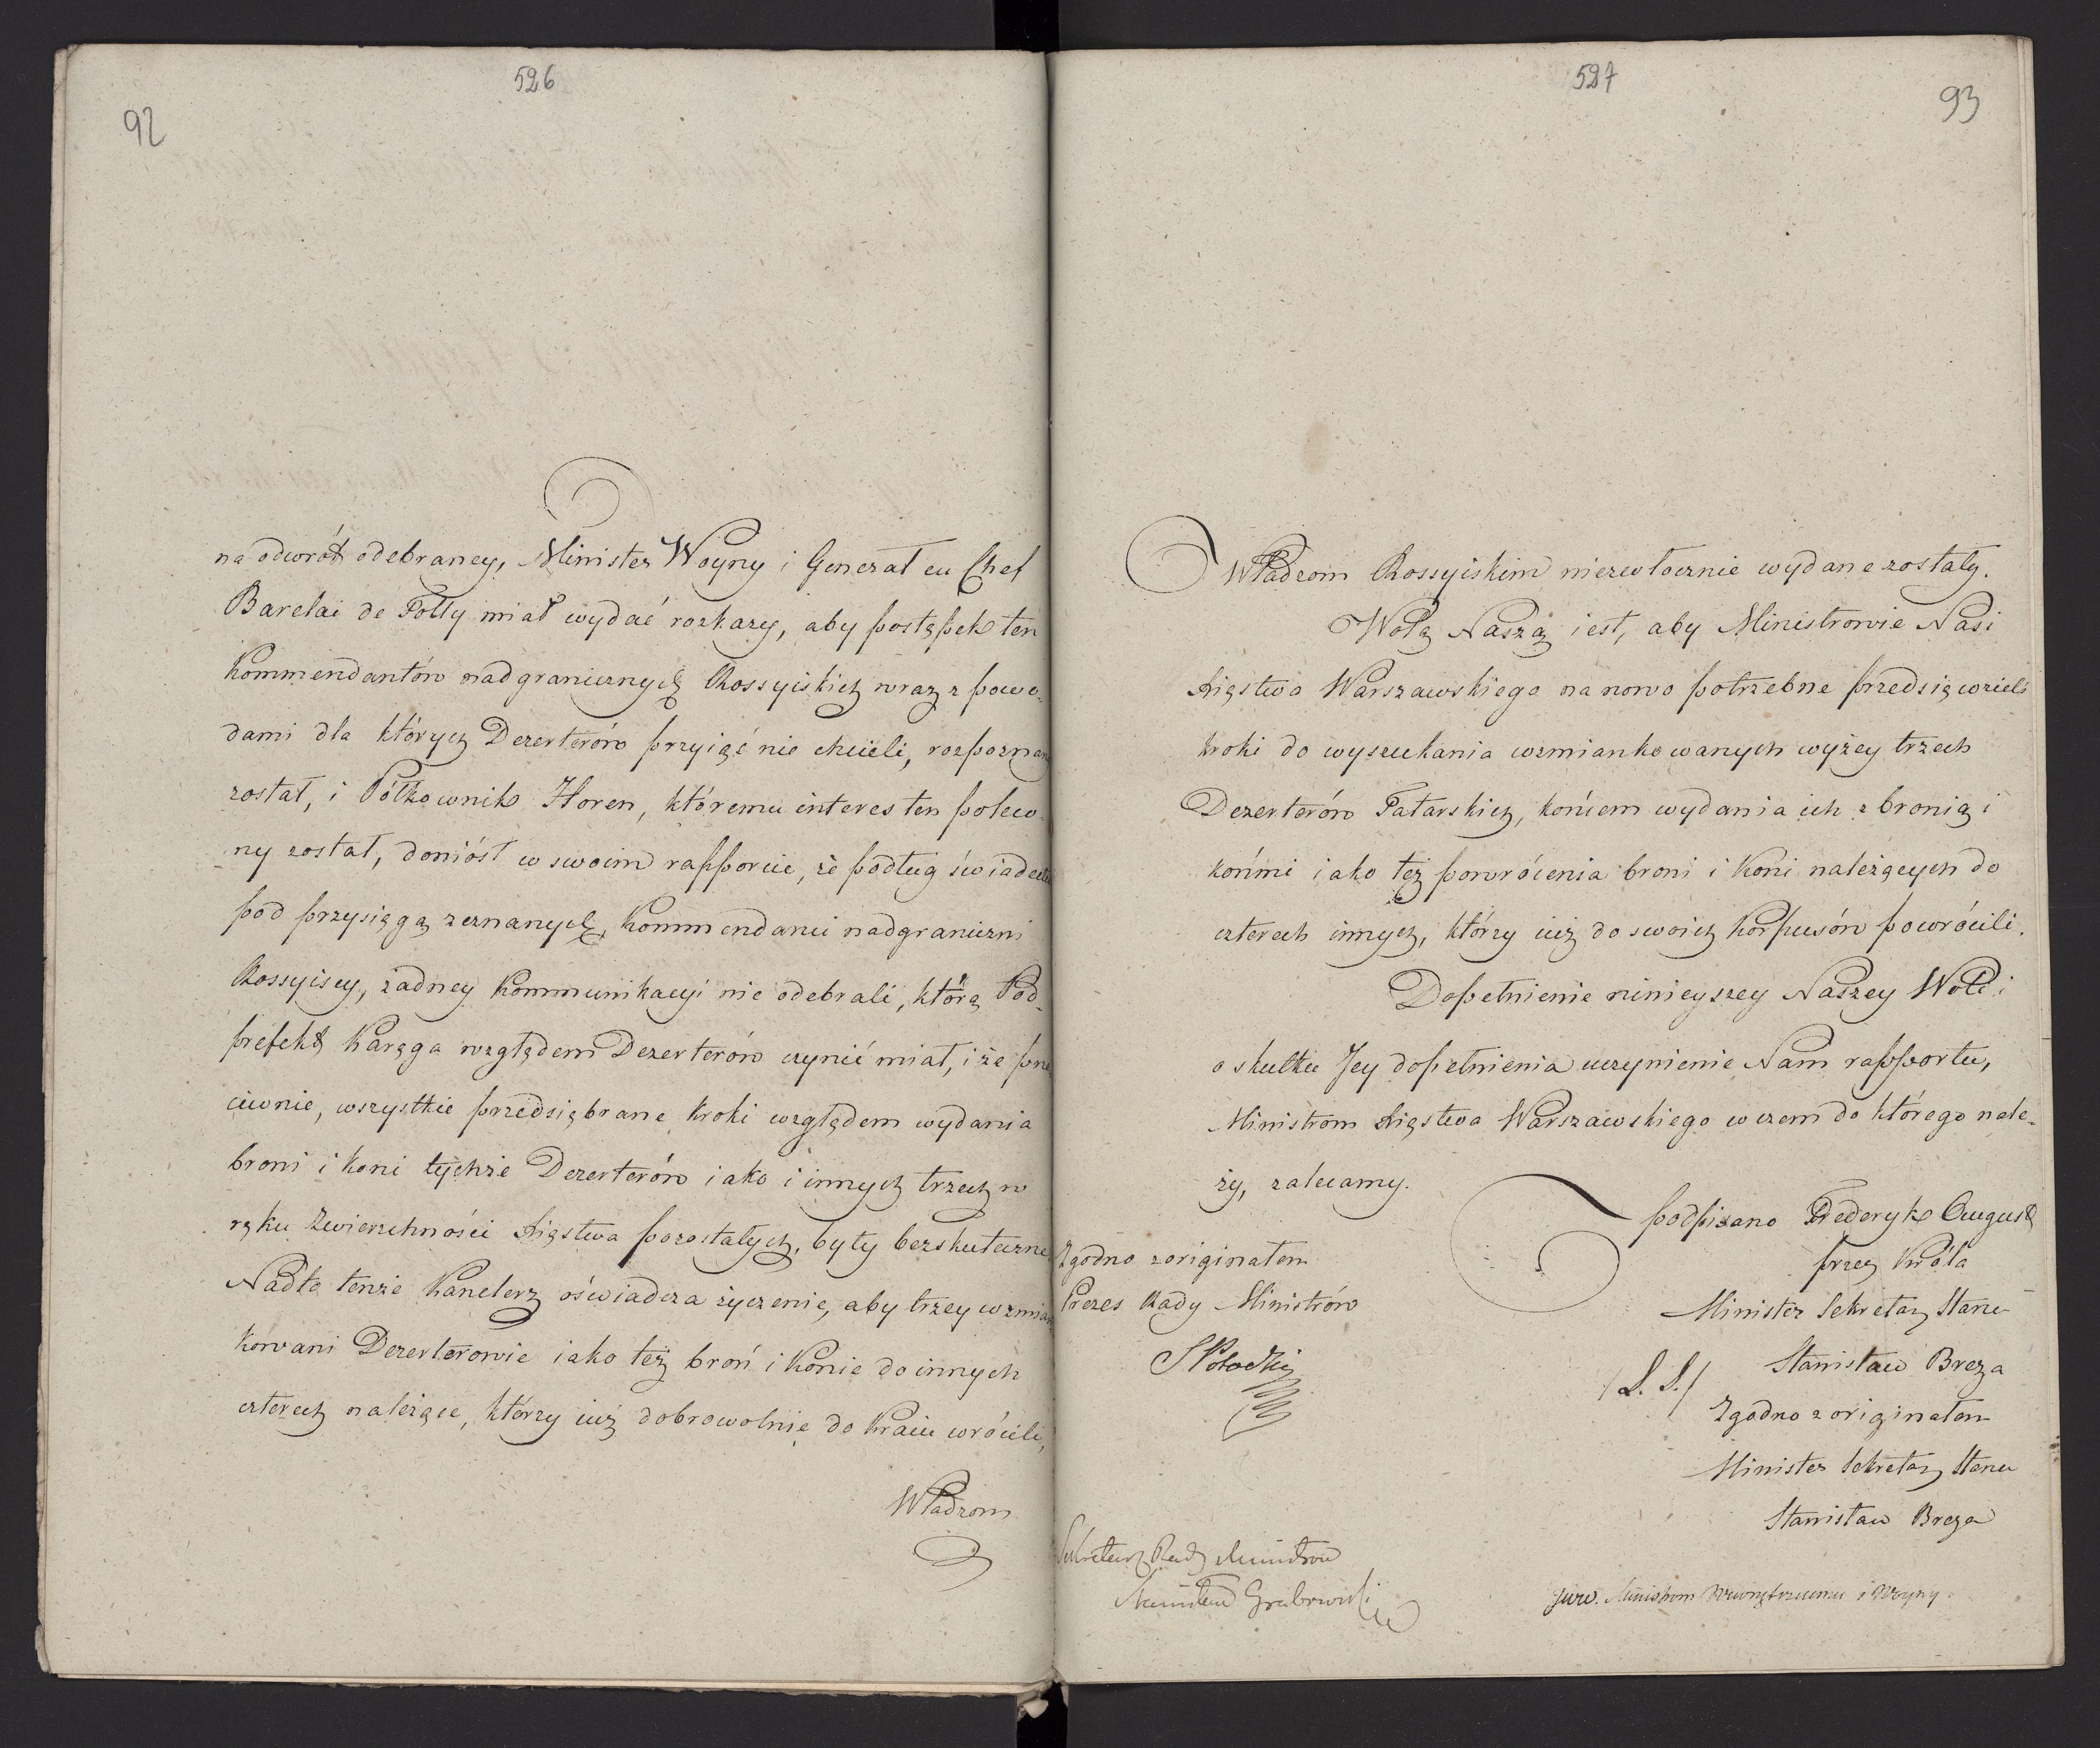 526
92
na odwrót odebraney, Minister Woyny i Generał en Chef
Barclai de Tolly miał wydać rozkazy, aby postępek ten
Kommendantów nadgranicznych Rossyiskich wraz z powo-
dami dla których Dezerterów przyiąć nie chcieli, rozpoznany
został, i Półkownik Horen, któremu interes ten poleco-
ny został, doniósł w swoim rapporcie, że podług świadectw
pod przysięgą zeznanych, Kommendanci nadgraniczni
Rossyiscy, żadney Kommunikacyi nie odebrali, którą Pod-
prefekt Karęga względem Dezerterów czynić miał, i że prze
ciwnie, wszystkie przedsiębrane kroki względem wydania
broni i koni tychże Dezerterów iako i innych trzech w
ręku Zwierzchności Xięstwa pozostałych, były bezskuteczne
Nadto tenże Kanclerz oświadcza życzenie, aby trzey wzmian
kowani Dezerterowie iako też broń i konie do innych
czterech należące, którzy iuż dobrowolnie do Kraiu wrócili,
Władzom
527
93
Władzom Rossyiskim niezwłocznie wydane zostały.
Wolą Naszą iest, aby Ministrowie Nasi
Xięstwa Warszawskiego na nowo potrzebne przedsięwzieli
kroki do wyszukania wzmiankowanych wyżey trzech
Dezerterów Tatarskich, końcem wydania ich z bronią i
końmi iako też powrócenia broni i Koni należących do
czterech innych, którzy iuż do swoich Korpusów powrócili.
Dopełnienie ninieyszey Naszey Woli i
o skutku Jey dopełnienia uczynienie Nam rapportu,
Ministrom Xięstwa Warszawskiego w czem do którego nale-
ży, zalecamy.
podpisano Frederyk August
przez Króla
Minister Sekretarz Stanu
/L. S./ Stanisław Breza
Zgodno z originałem
Minister Sekretarz Stanu
Stanisław Breza
Zgodno z originałem
Prezes Rady Ministrów
S Potocki
Sekretarz Rady Ministrów
Stanisław Grabowski
Ministrom Wewnętrznemu i Woyny.